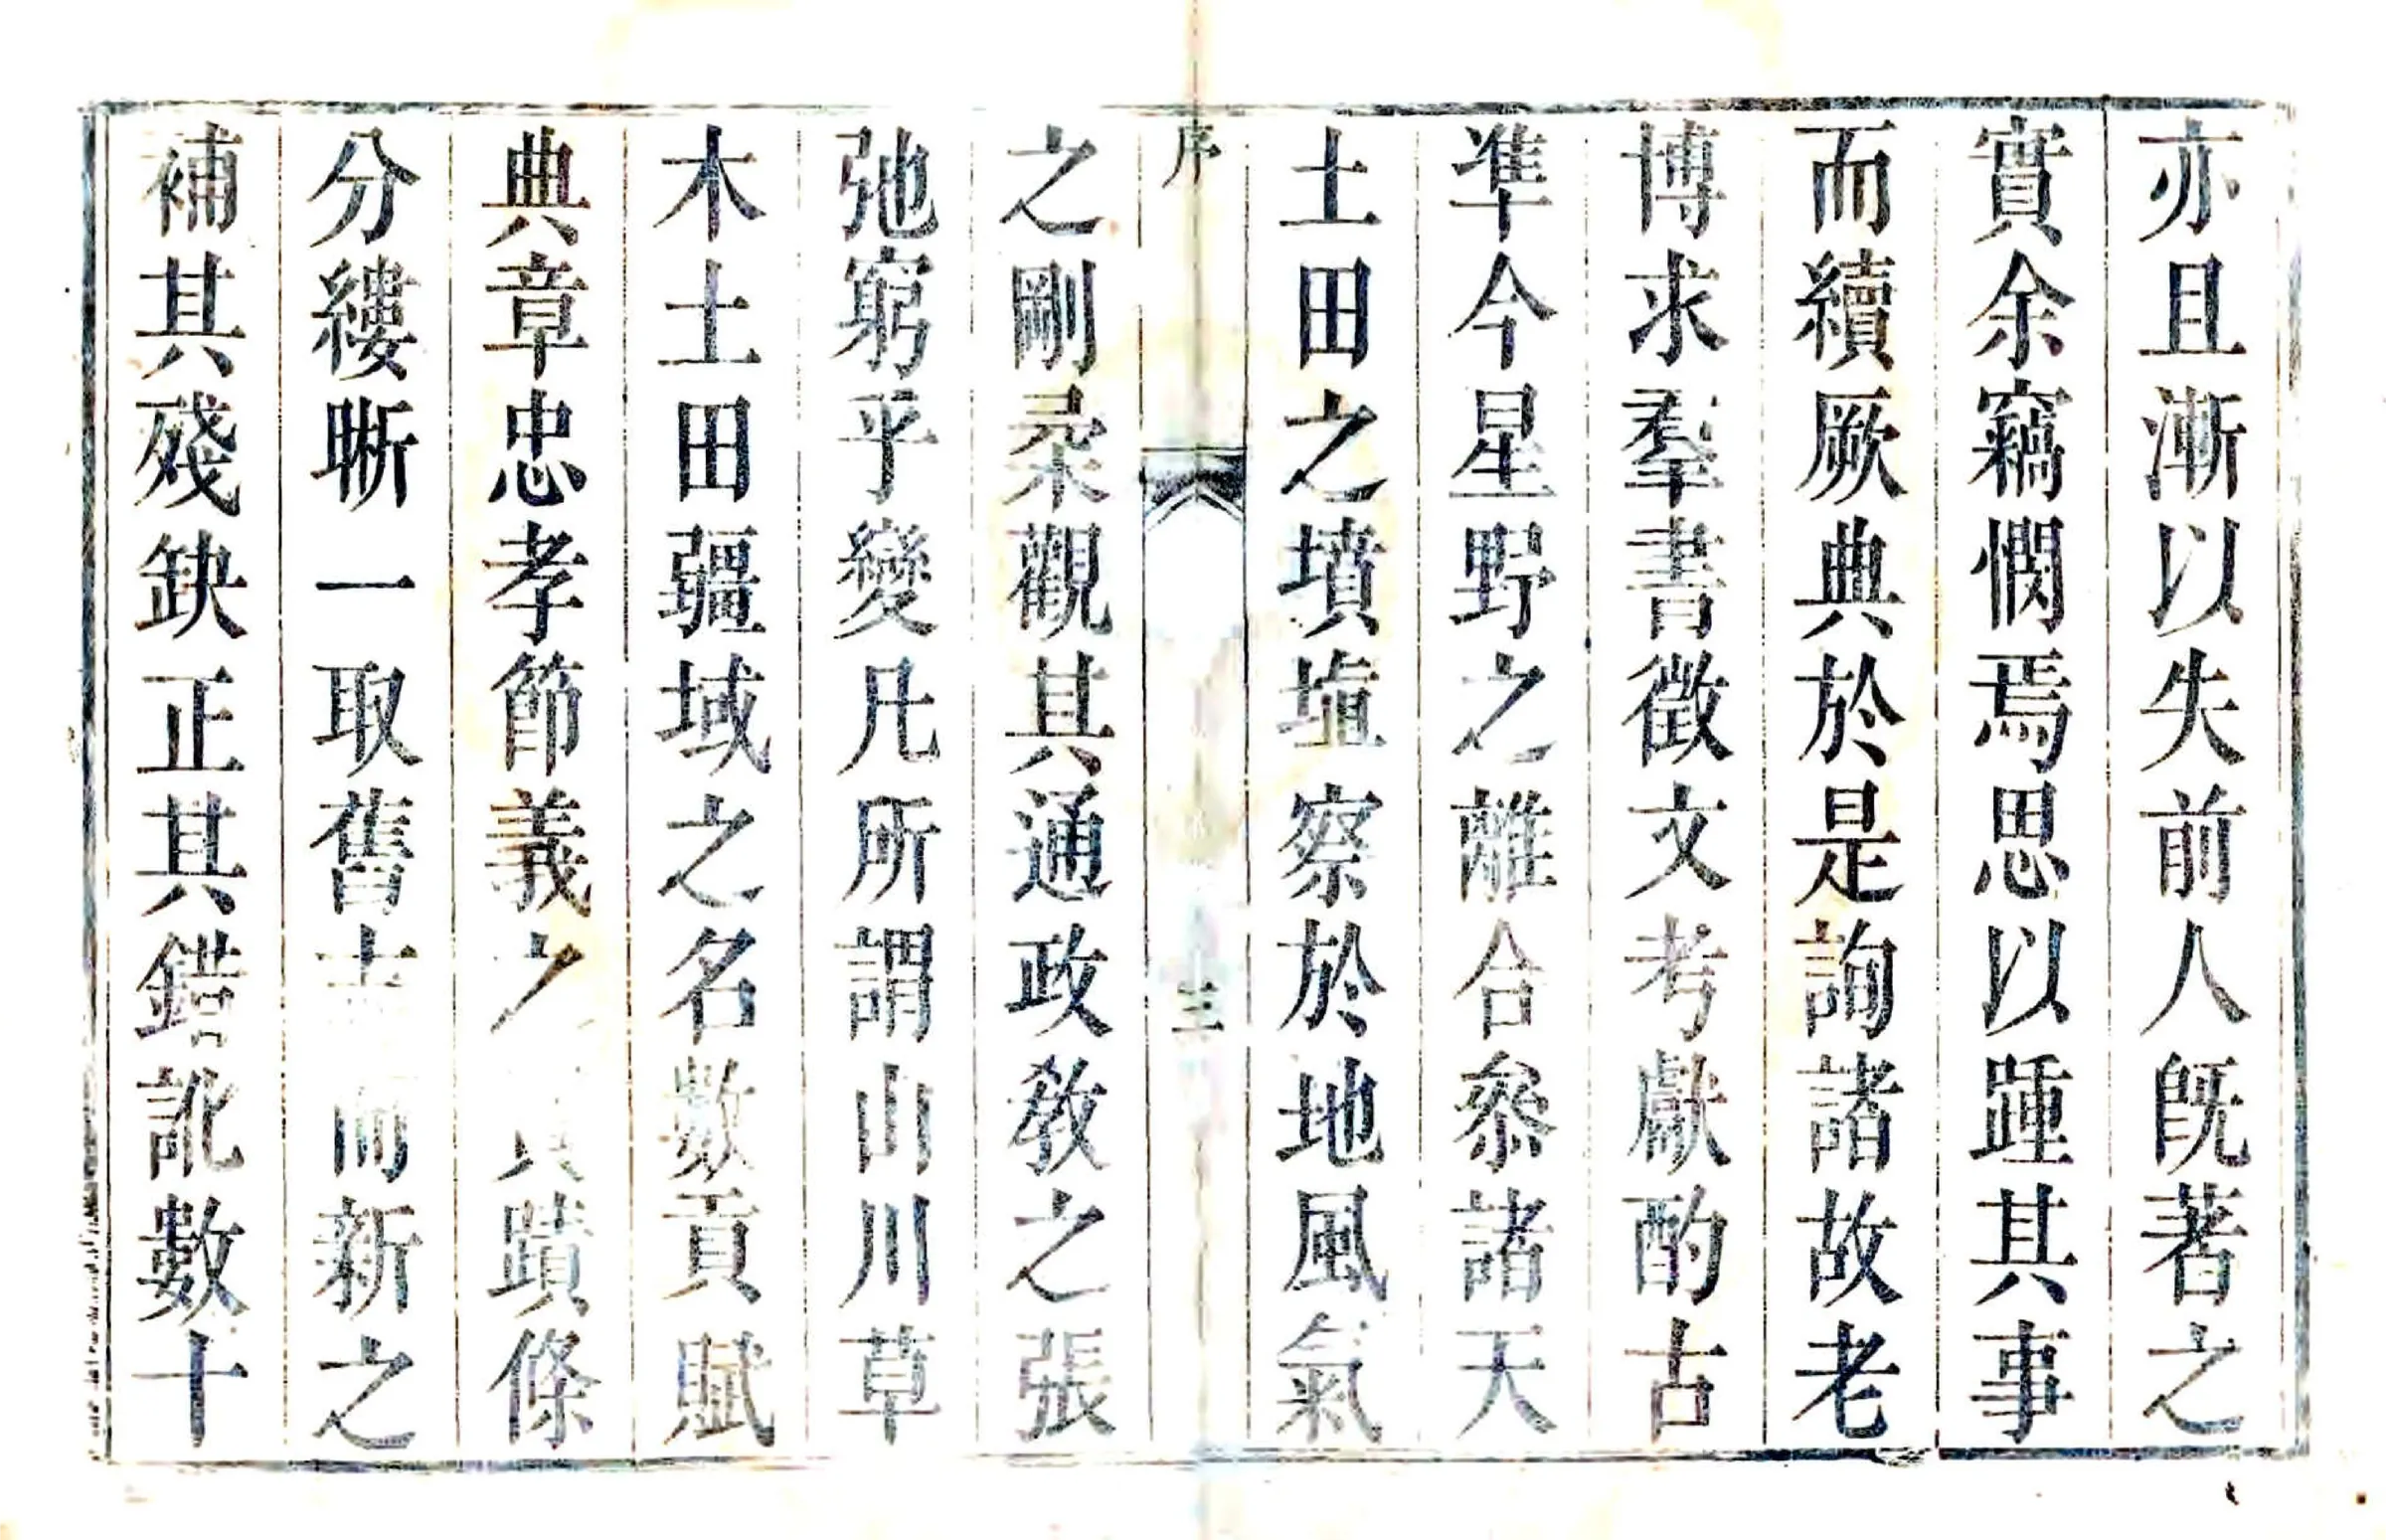 亦且漸以失前人旣著之
實余竊憫焉思以踵其事
而續厥典於是詢諸故老
博求羣書徵文考獻酌古
準今星野之離合叅諸天
土田之墳埴察於地風氣
序
三
之剛柔觀其通政敎之張
弛窮乎變凡所謂山川草
木土田疆域之名數貢賦
典章忠孝節義之蹟條
分縷晣一取舊而新之
補其殘缺正其錯訛數十